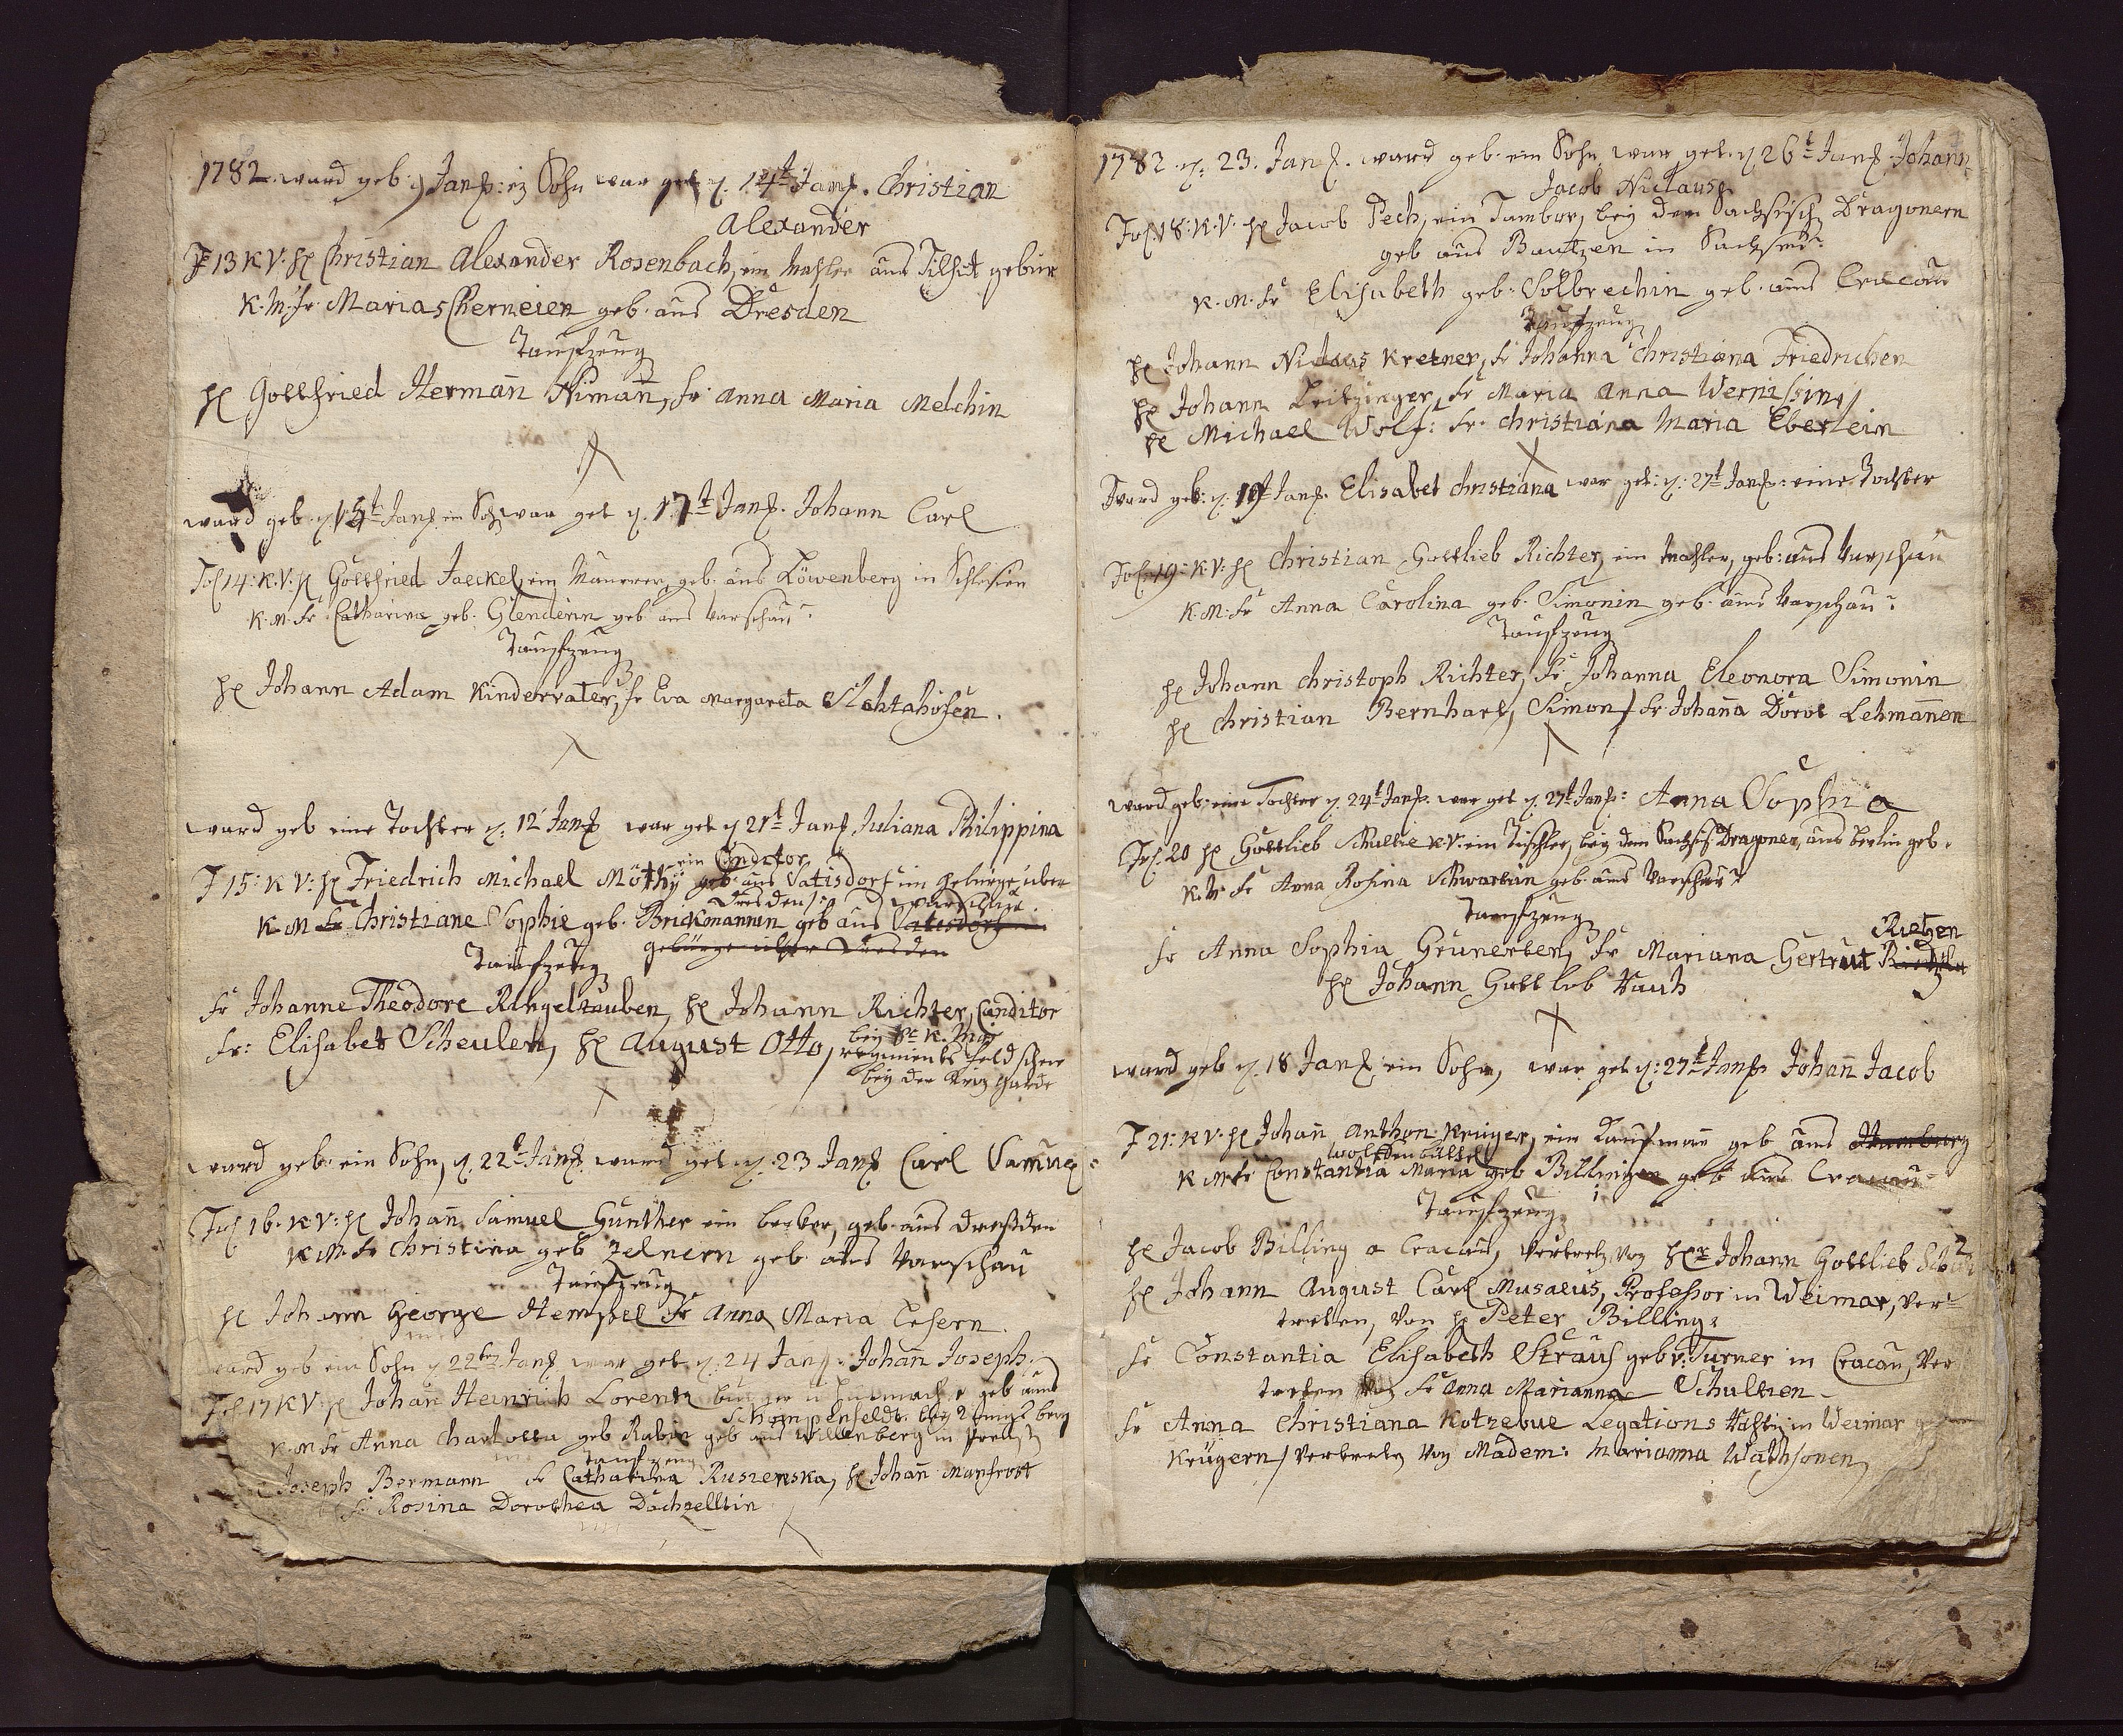 1782 ward geb: Jan: ein Sohn war get d. 14t Jan. Christian
Alexander
13 K V: H Christian Alexander Rosenbach, ein Mahler aus Tilsit gebür
K. M. fr. Maria Scherneien geb. aus Dresden
Taufzeug
H Gottfried Hermann Nimann, fr Anna Maria Melchin
ward geb. d 15t Jan ein Sohn war get d. 17t Jan. Johann Carl
Fol 14: K. V: H Gottfried Jaeckel, ein Maurer, geb. aus Löwenberg in Schlesien
K. M. fr Catharina geb. Glenderin geb aus Warschau
Taufzeug
H Johann Adam Kindervater, fr Eva Margareta
ward geb eine Tochter d. 12 Jan war get d 21t Jan Juliana Philippina
ein Conditor
F 15: K V: H Friedrich Michael Möthy geb. aus Satisdorf im gebürge über
Dresden Warschau
K. M fr Christiane Sophie geb. Brickmannin geb aus Satisdorf
gebürge über Dresden
Taufzeug
fr Johanne Theodore Ringeltauben, H Johann Richter, Conditor
fr: Elisabet Scheulen, H August Otto, bey Sr K. May
regiments feldscher
bey der Garde
ward geb. ein Sohn, d. 22t Jan ward get d. 23 Jan Carl Samuel
Fol 16. K V: H Johann Samuel Günther ein becker, geb. aus Dresden
K. M. fr Christina geb Zelnern geb. aus Warschau
Taufzeug
H Johann George Hempel fr Anna Maria Lesern
ward geb ein Sohn d 22ten Jan war get d. 24 Jan. Johann Joseph.
Fol 17 K V H Johann Heinrich Lorentz burger u Hutmacher geb aus
Schompenfeldt. bey
K. M fr Anna Charlotta geb Rabin geb aus Willenberg in Preuss
Taufzeug
Joseph Bermann fr Catharina Ruszenska, H Johann Manfrost
fr Rosina Dorothea Dachzelltin
1782 d. 23. Jan. ward geb. ein Sohn, war get. d 26t Jan Johann
Jacob Niclaus
Fol 18: K. V. H Jacob Pech, ein Tambor, bey den Sachsisch Dragonern
geb aus Bautzen in Sachsen
K. M. fr Elisabeth geb: Solbrechin geb. aus Cracau
Taufzeug
H Johann Niclaus Kretner, fr Johanna Christiana Friedrichen
H Johann Leitzinger, fr Maria Anna Wernissin
H Michael Wolf: fr. Christiana Maria Eberlein
ward geb: d. 19t Jan. Elisabet Christiana war get: d. 27t Jan: eine Tochter
Fol 19: K V: H Christian Gottlieb Richter, ein Mahler, geb: aus Warschau
K. M: fr Anna Carolina geb. Simonin geb. aus Warschau
Taufzeug
H Johann Christoph Richter, fr Johanna Eleonora Simonin
H Christian Bernhart, Simon, fr Johanna Dorot Lehmannen
ward geb: eine Tochter d. 24t Jan. war get d. 27t Jan: Anna Sophia
Fol. 20 H Gottlieb Schultze K V. ein Tischler, bey dem Sachsis Dragoner, aus Berlin geb.
K. M. fr Anna Rosina Schwartzin geb. aus Warschau
Taufzeug
Rietzen
fr Anna Sophia Grunerten, fr Mariana Gertrut
H Johann Gottlob Rauh
ward geb d. 18 Jan, ein Sohn, war get d: 27t Jan Johann Jacob
F 21: K V. H Johann Anthon Krüger, ein Kaufmann geb aus Hamburg
Wolffenbüttel
K M fr Constantia Maria geb Billingen geb aus Cracau
Taufzeug
H Jacob Billing a Cracau, vertretz von Hr Johann Gottlieb
H Johann August Carl Musaeus, Professor in Weimar, ver-
tretten, von H Peter Billing
fr Constantia Elisabeth Straus geb v. Turner in Cracau, Ver
tretten von fr Anna Marianna Schultzen
fr Anna Christiana Kotzebue Legations Räthin in Weimar
Krügern, vertretz von Madem: Marianna Wathsonen